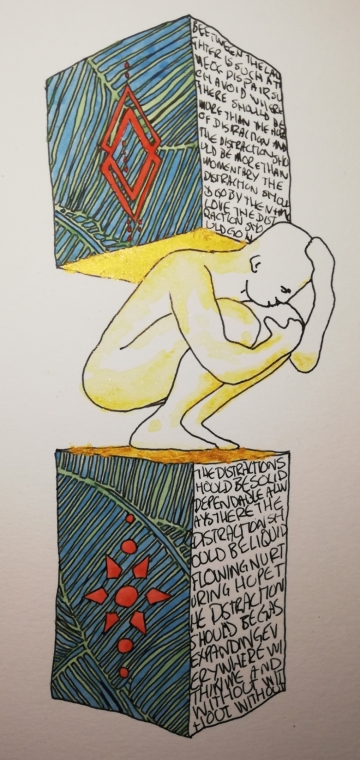 BEETWEEN THE CAU
NTER IS SUCH AT
MECK DISPAIR SU
CH A VOID WHERE
THERE SHOULD BE
MORE THAN THE
OF DISTRACTION
THE DISTRACTION SHO
ULD BE MORE THAN
MOMENTARY THE
DISTRACTION
D GO BY THE NAM
LOVE THE DIST
RACTION SHO
ULD GO
THE DISTRACTIONS
HOULD BE SOLID
DEPENDABLE ALW
AYS THERE THE
DISTRACTION SH
OULD BE LIQUID
FLOWING NURT
URING HOPE T
HE DISTRACTION
SHOULD BE GAS
EXPANDING EV
ERYWHERE WI
THIN ME AND
WITHOUT WIT
HOUT WITHOUT